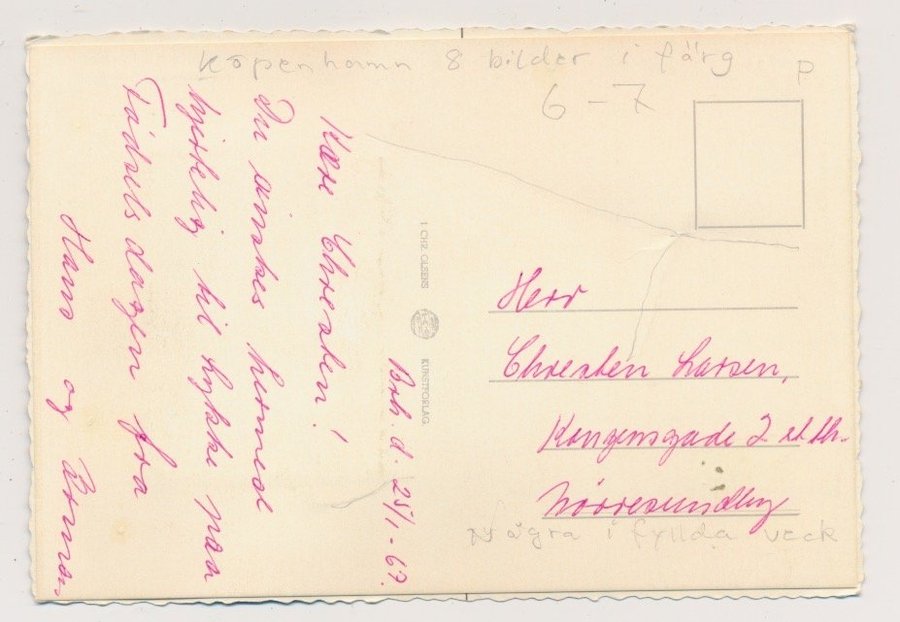 Köpenhamn 8 bilder i färg
6-7
P
Brh. d. 25/1-67.
Kære Chresten!
Du ønskes hermed
hjertelig til Lykke paa
Fødselsdagen fra
Hans og
I. CHR. OLSENS KUNSTFORLAG
Herr
Chresten Larsen,
Kongensgade 2 st. th.
Nørresundby
Några ifyllda veck